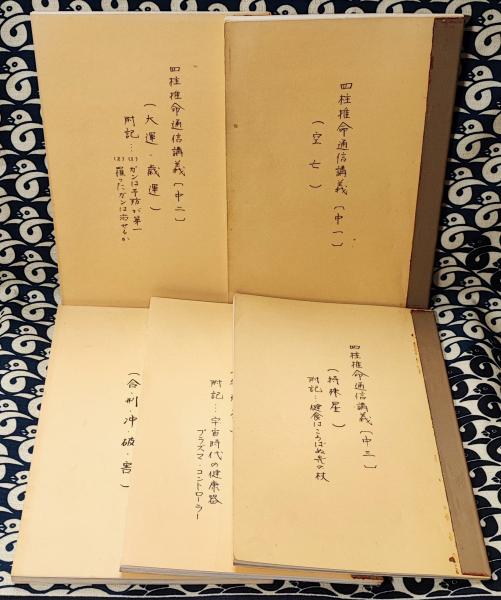 四柱推命通信講義〔中一〕
（空亡）
四柱推命通信講義〔中二〕
（大運・歳運）
附記…(1)ガンは予防が第一
(2)罹ったガンは治せるか
四柱推命通信講義〔中三〕
（特殊星）
附記…健食はころばぬ先の杖
附記…宇宙時代の健康器
プラズマ・コントローラー
（合・刑・冲・破・害）